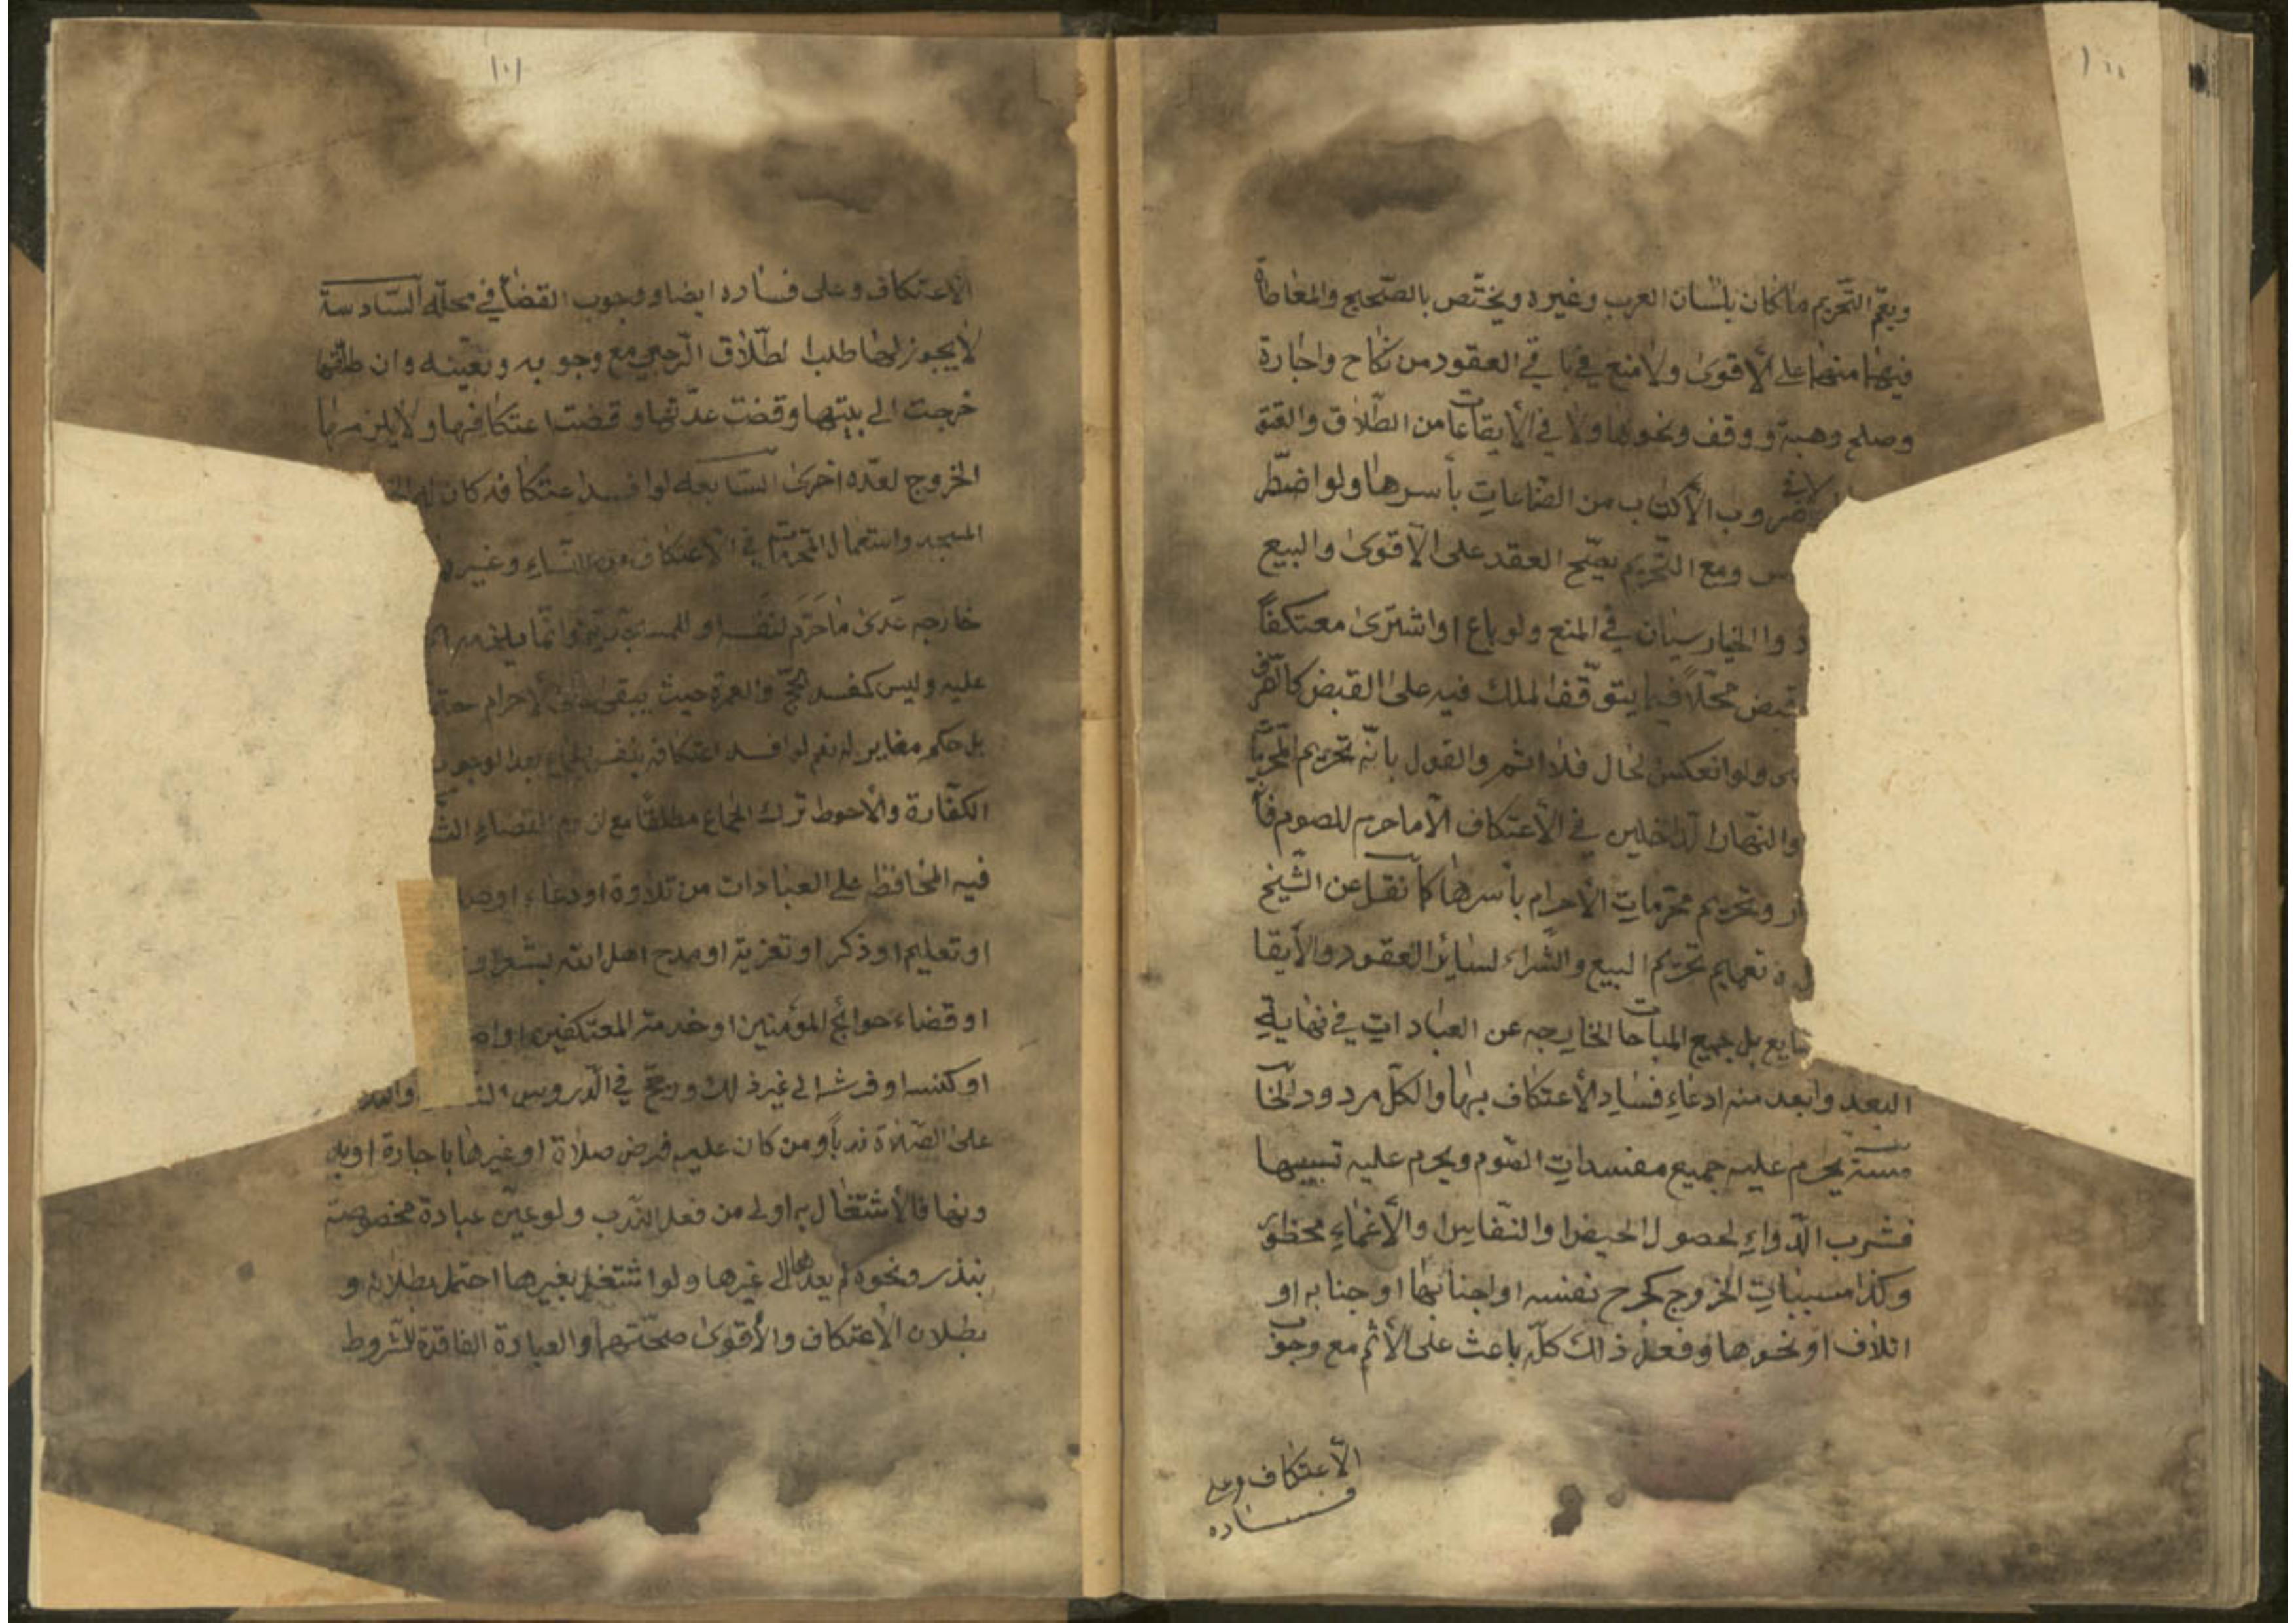 ١٠٠
ويعمّ التّحريم ما كان بلسان العرب وغيره ويختّص بالصّحيح والمعاطاة
فيهما منهما على الأقوى ولا منع في باقي العقود من نكاح واجارة
وصلح وهبة ووقف ونحوها ولا في الأيقاعات من الطّلاق والعتق
ضروب الأكتساب من الصّناعات بأسرها ولو اضطّر
ومع التّحريم يصّح العقد على الأقوى والبيع
ذوا الخيار سيان في المنع ولو باع او اشترى معتكفًا
محلّاً فيما يتوقّف الملك فيه على القبض كالصّرف
ولو انعكس الحال فلا اثم والقول بأنّه تحريم
والنّهار الدّاخلين في الأعتكاف الّا ما حرم للصوم
وتحريم محرّمات الأحرام بأسرها كما نقل عن الشّيخ
تعميم تحريم البيع والشّراء لساير العقود والأيقا
بل جميع المباحات الخارجه عن العبادات في نهاية
البعد وابعد منه ادعاء فساد الأعتكاف بها والكلّ مردود الخا
مسة يحرم عليه جميع مفسدات الصّوم ويحرم عليه تسبيبها
فشرب الدّواء لحصول الحيض او النّفاس او الأغماء محظور
وكذا مسببات الخروج كجرح نفسه او اجنابها او جنابه او
اتلاف او نحوها وفعل ذلك كلّه باعث على الأثم مع وجوب
الأعتكاف وعلى
فساده
١٠١
الاعتكاف وعلى فساده ايضا ووجوب القضاء في محلّه السّادسة
لا يجوز لها طلب الطّلاق الرّجعي مع وجوبه وتعيّنه وان طلّقها
خرجت الى بيتها وقضت عدّتها وقضت اعتكافها ولا يلزمها
الخروج لعدّة اخرى السّابعه لو افسد اعتكافه كان له
المسجد واستعمال في الأعتكاف من النّساء وغيرها
خارجه عدى ما حرّم لنفسه او للمسجد وانّما يلزمه
عليه وليس كمفسد الحجّ والعمرة حيث يبقى على الأحرام
بل حكم مغاير له نعم لو افسد اعتكافه بنفس الجماع بعد الوجوب
الكفّارة والأحوط ترك الجماع مطلقًا مع لزوم القضاء
فيه المحافظة على العبادات من تلاوة او دعاء او
او تعليم او ذكر او تعزية او مدح اهل الله بشعر او
او قضاء حوائج المؤمنين او خدمة المعتكفين او
او كنس او فرش الى غير ذلك ويرجّح في الدّروس
على الصّلاة ندبًا ومن كان عليه فرض صلاة او غيرها باجارة او
ونها فالأشتغال به اولى من فعل النّدب ولو عيّن عبادة مخصوصة
بنذر ونحوه لم يعدها الى غيرها ولو اشتغل بغيرها احتمل بطلانه و
بطلان الأعتكاف والأقوى صحّتهما والعبادة الفاقدة للشّروط